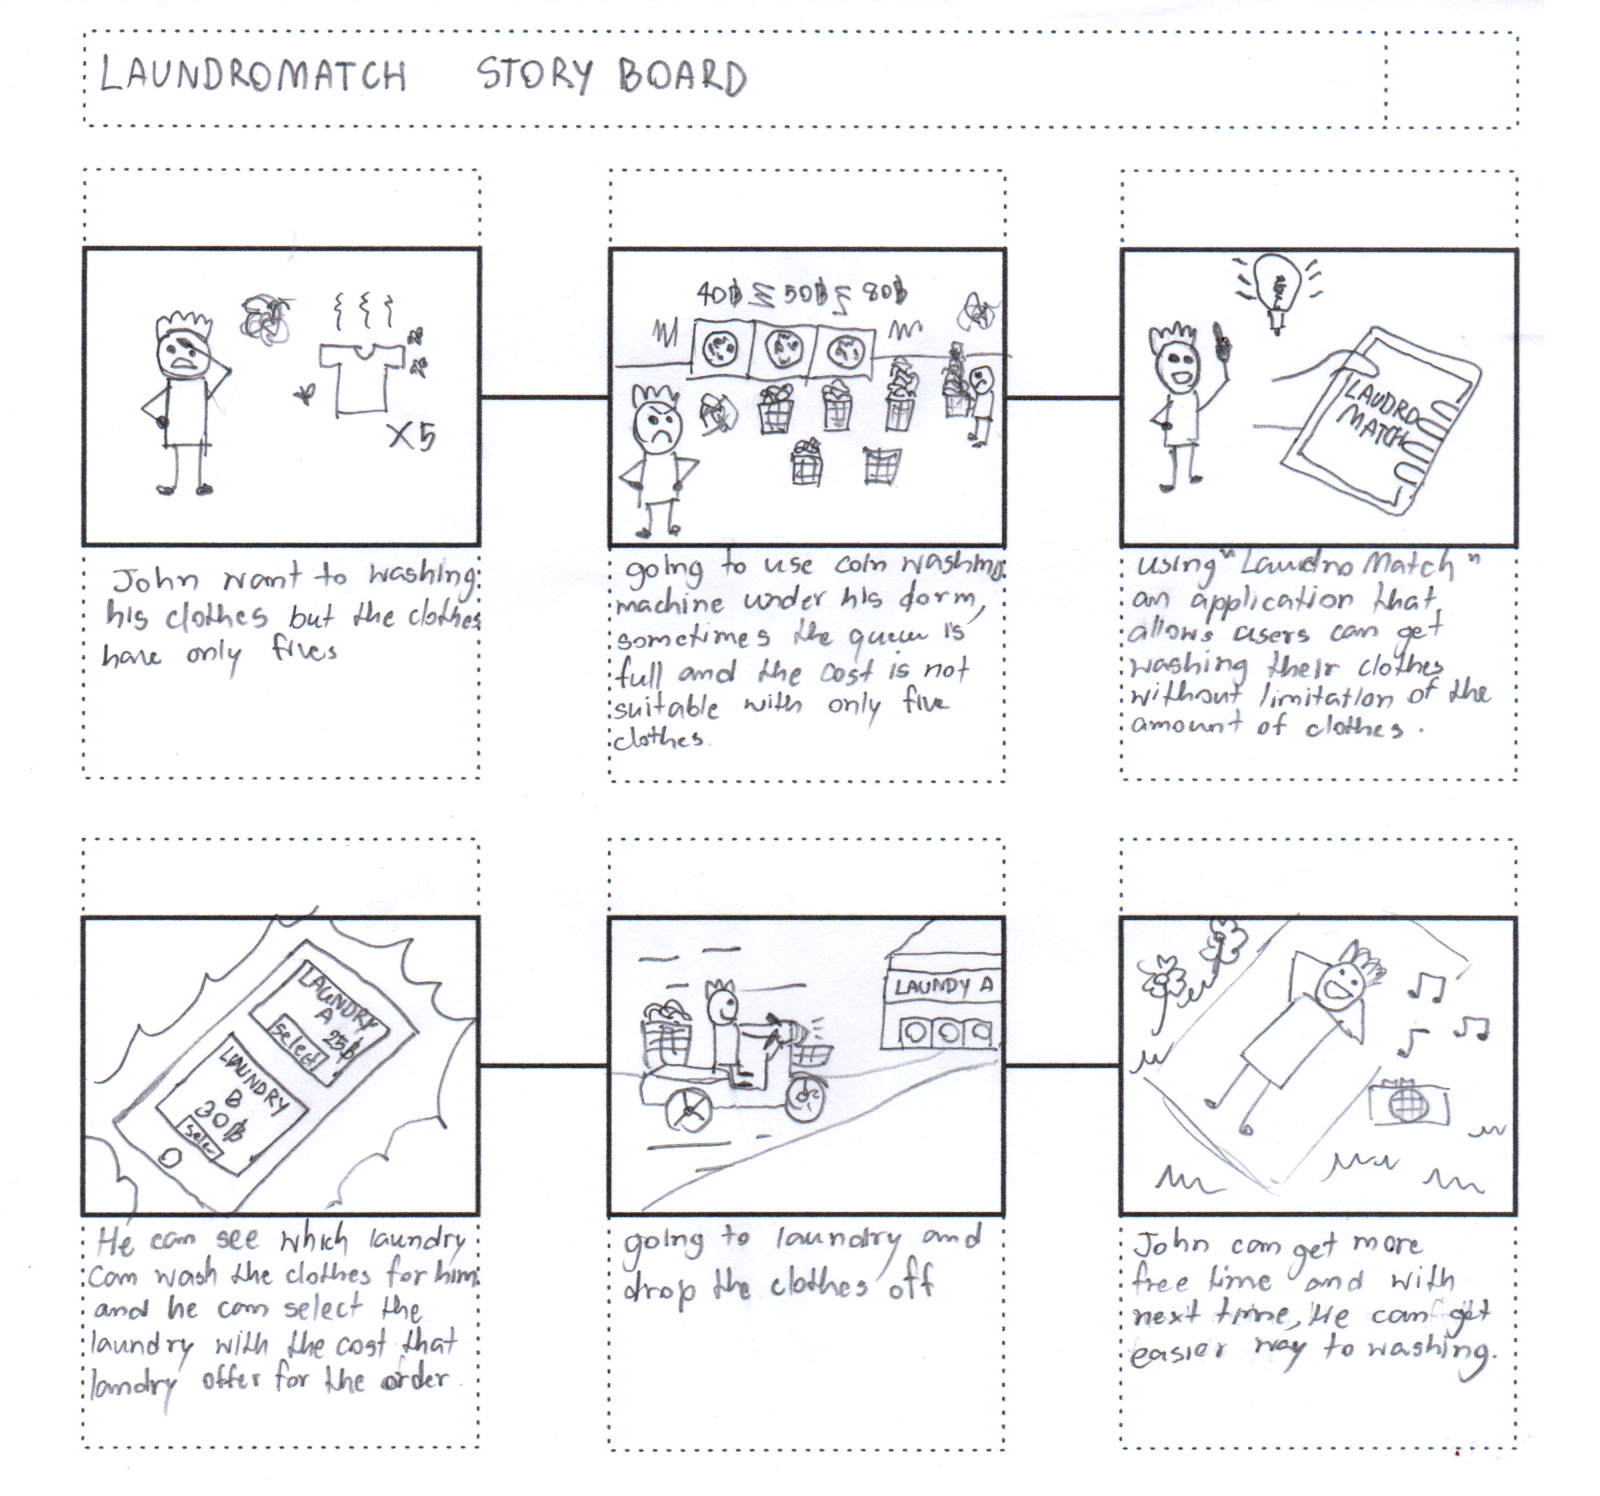 LAUNDROMATCH STORY BOARD
X5
John want to washing
his clothes but the clothes
have only fives
40฿ 50฿ 80฿
going to use coin washing
machine under his dorm,
sometimes the queue is
full and the cost is not
suitable with only five
clothes.
LAUDRO
MATCH
using "LaundroMatch"
an application that
allows users can get
washing their clothes
without limitation of the
amount of clothes.
LAUNDRY
A 25฿
select
LAUNDRY
B
30฿
selec
He can see which laundry
can wash the clothes for him
and he can select the
laundry with the cost that
laundry offer for the order.
LAUNDY A
going to laundry and
drop the clothes off
John can get more
free time and with
next time, He can get
easier way to washing.